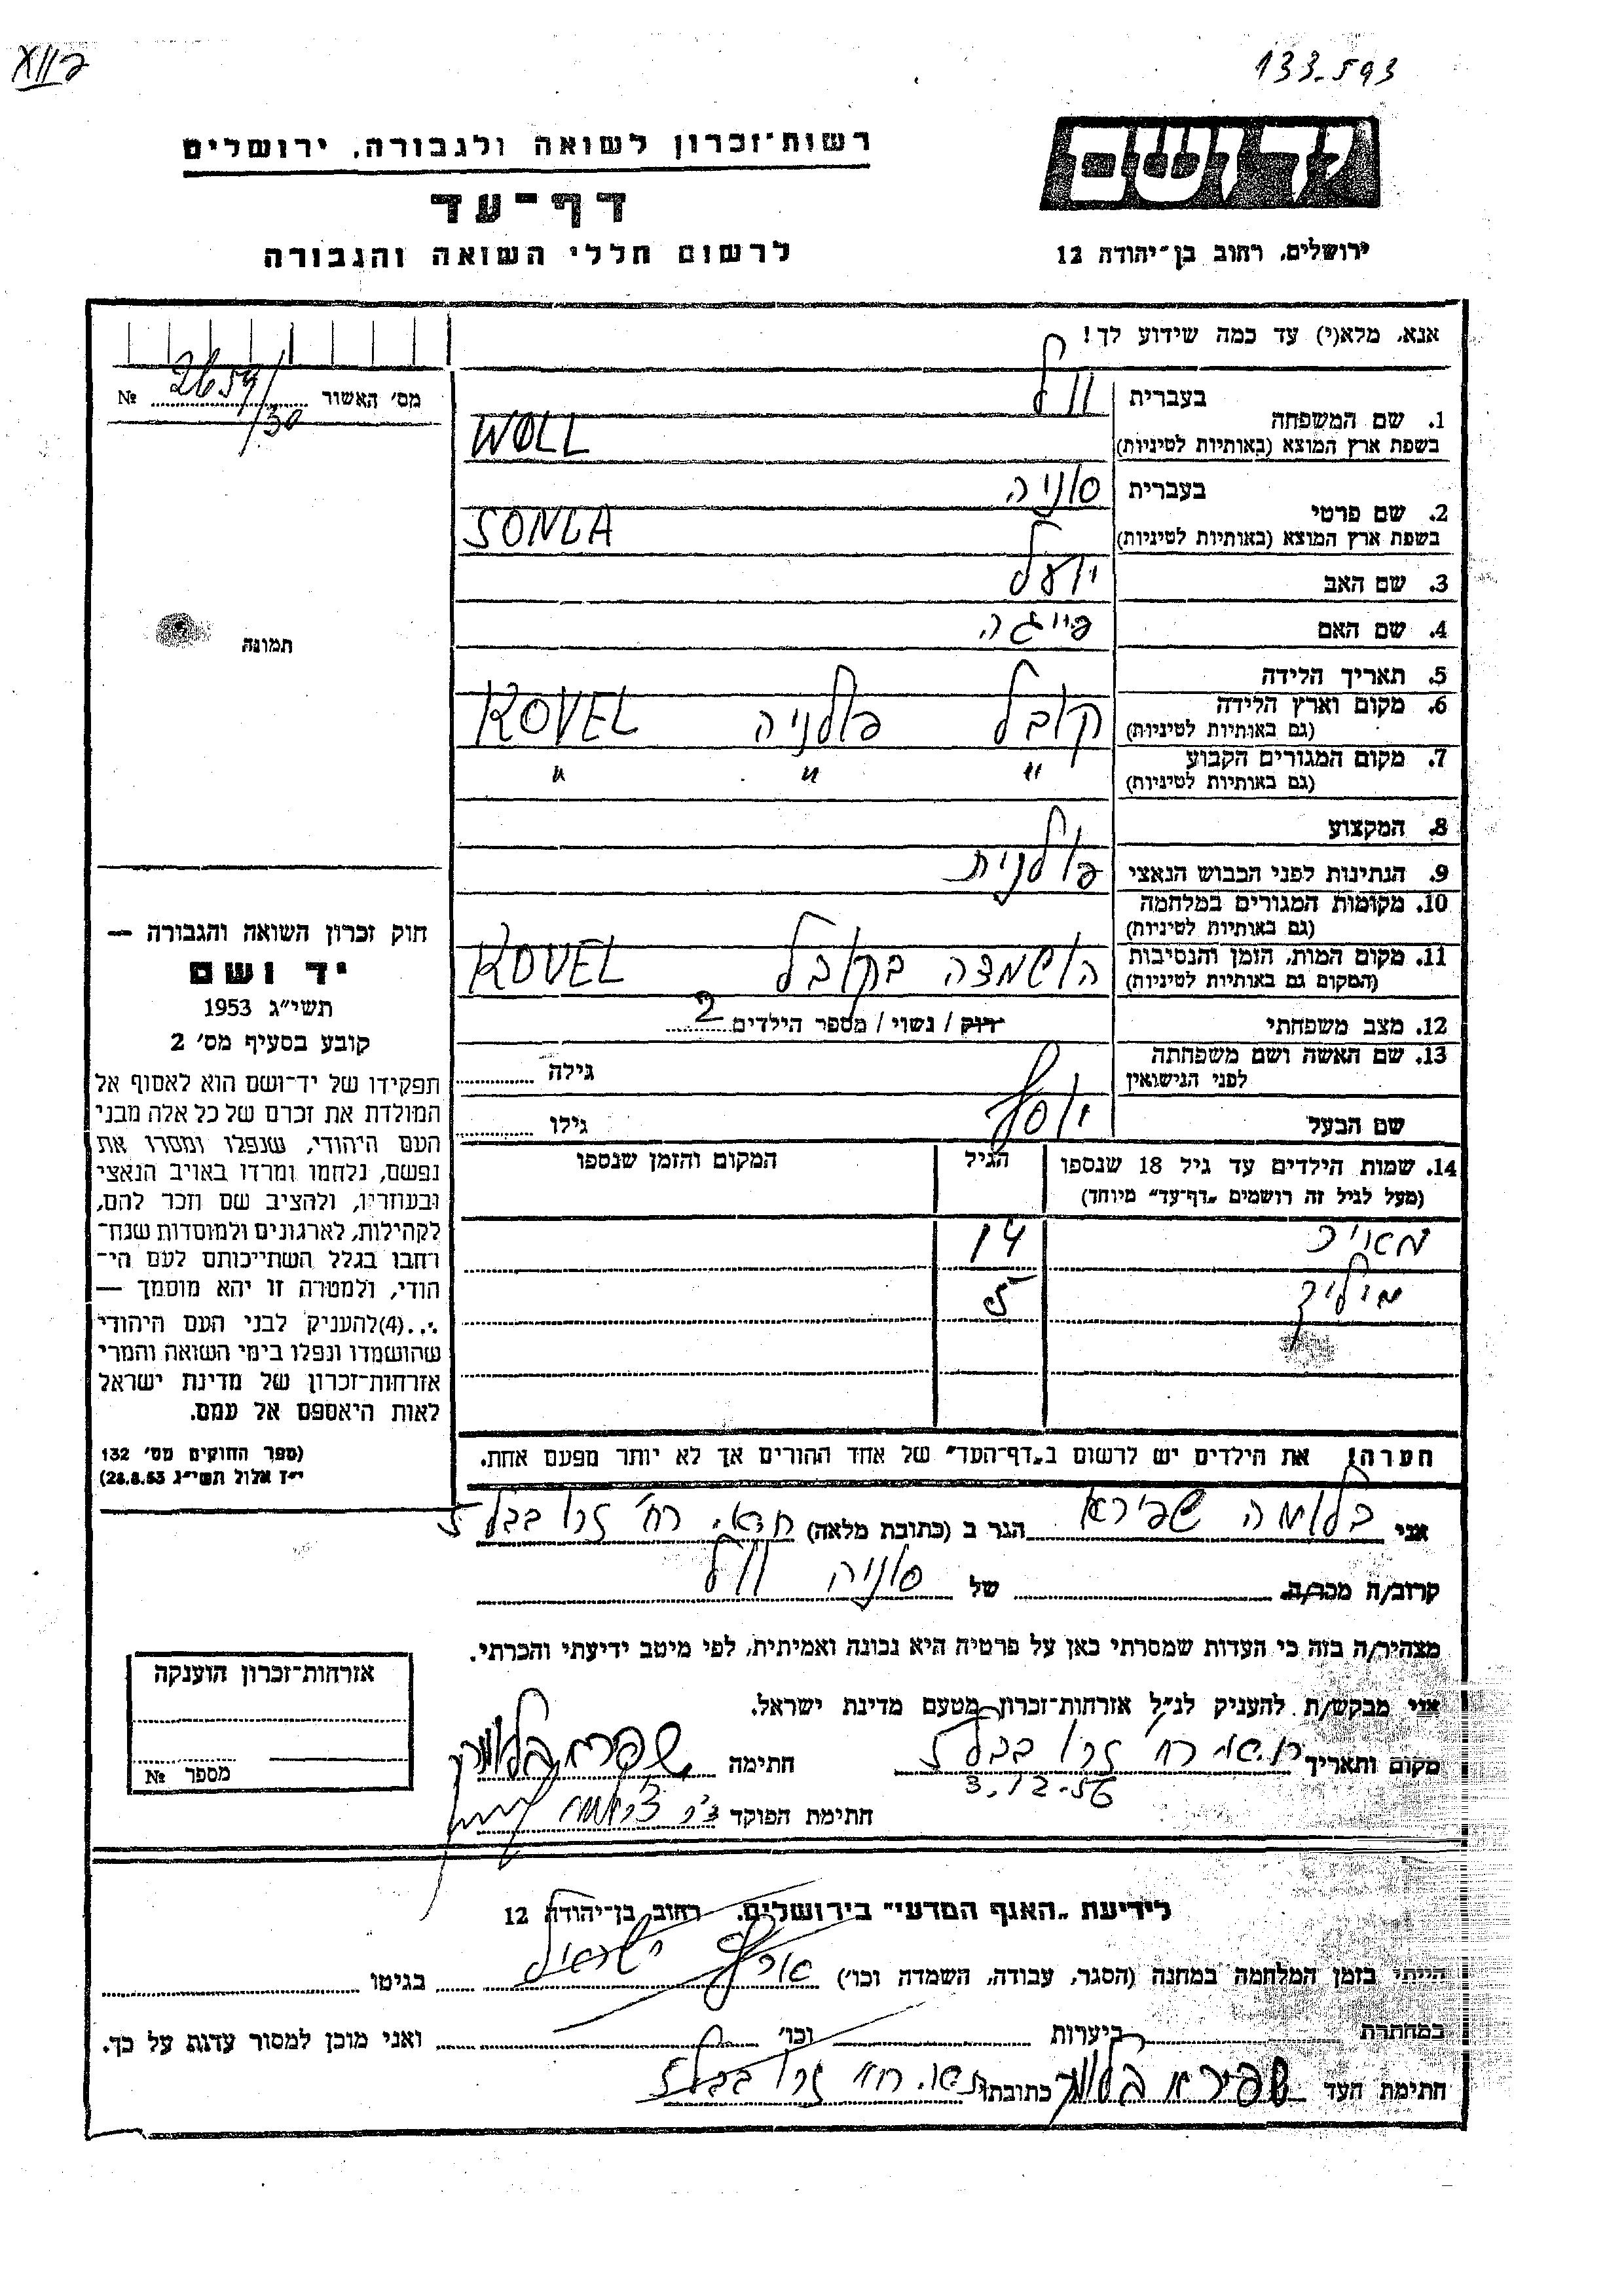 XII 133-593
יד ושם
רשות-זכרון לשואה ולגבורה, ירושלים
דף-עד
לרשום חללי השואה והגבורה
ירושלים, רחוב בן-יהודה 12
אנא, מלא(י) עד כמה שידוע לך!
מס' האשור 2659/30 №
1. שם המשפחה בעברית וול
בשפת ארץ המוצא (באותיות לטיניות) WOLL
2. שם פרטי בעברית סוניה
בשפת ארץ המוצא (באותיות לטיניות) SONIA
3. שם האב יואל
4. שם האם פייגה
תמונה
5. תאריך הלידה
6. מקום וארץ הלידה (גם באותיות לטיניות) קובל פולניה KOVEL
7. מקום המגורים הקבוע (גם באותיות לטיניות) " " "
8. המקצוע
9. הנתינות לפני הכבוש הנאצי פולנית
10. מקומות המגורים במלחמה (גם באותיות לטיניות)
11. מקום המות, הזמן והנסיבות (המקום גם באותיות לטיניות) הושמדה בקובל KOVEL
12. מצב משפחתי רווק / נשוי / מספר הילדים 2
13. שם האשה ושם משפחתה לפני הנישואין גילה
שם הבעל יוסף גילו
14. שמות הילדים עד גיל 18 שנספו הגיל המקום והזמן שנספו
(מעל לגיל זה רושמים "דף-עד" מיוחד)
14
5
הערה! את הילדים יש לרשום ב"דף-העד" של אחד ההורים אך לא יותר מפעם אחת.
חוק זכרון השואה והגבורה —
יד ושם
תשי"ג 1953
קובע בסעיף מס' 2
תפקידו של יד-ושם הוא לאסוף אל
המולדת את זכרם של כל אלה מבני
העם היהודי, שנפלו ומסרו את
נפשם, נלחמו ומרדו באויב הנאצי
ובעוזריו, ולהציב שם וזכר להם,
לקהילות, לארגונים ולמוסדות שנח-
רחבו בגלל השתייכותם לעם הי-
הודי, ולמטרה זו יהא מוסמך —
...(4) להעניק לבני העם היהודי
שהושמדו ונפלו בימי השואה והמרי
אזרחות-זכרון של מדינת ישראל
לאות היאספם אל עמם.
(ספר החוקים מס' 132
י"ז אלול תשי"ג 28.8.53)
אני בלומה שפירא הגר ב (כתובת מלאה) רח' זרובבל 5
קרוב/ה מכר/ה של סוניה וול
מצהיר/ה בזה כי העדות שמסרתי כאן על פרטיה היא נכונה ואמיתית, לפי מיטב ידיעתי והכרתי.
אני מבקש/ת להעניק לנ"ל אזרחות-זכרון מטעם מדינת ישראל.
מקום ותאריך רח' זרובבל 5 חתימה
3.12.56
חתימת הפוקד
אזרחות-זכרון הוענקה
מספר №
לידיעת "האגף המדעי" בירושלים, רחוב בן-יהודה 12
הייתי בזמן המלחמה במחנה (הסגר, עבודה, השמדה וכו') ישראל בגיטו
במחתרת ביערות וכו' ואני מוכן למסור עדות על כך.
חתימת העד שפירא בלומה כתובתו רח' זרובבל 5